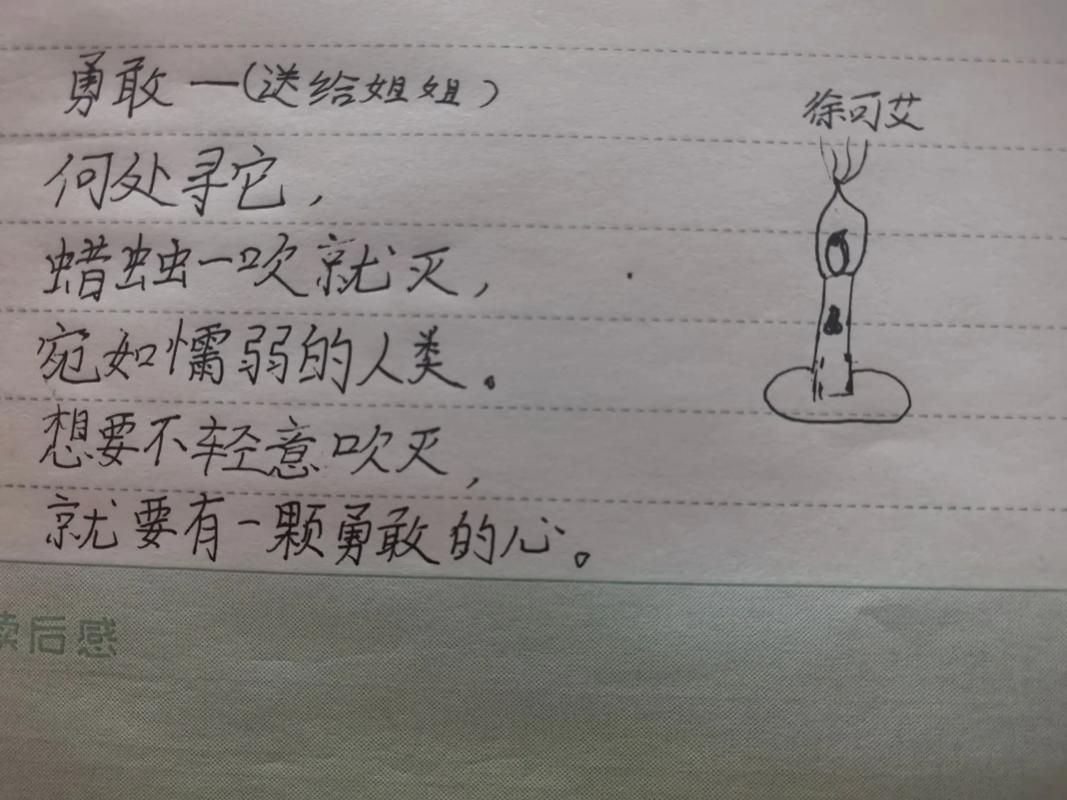 勇敢—(送给姐姐)
徐可艾
何处寻它,
蜡蚰一吹就灭,
宛如懦弱的人类。
想要不轻意吹灭,
就要有一颗勇敢的心。
读后感